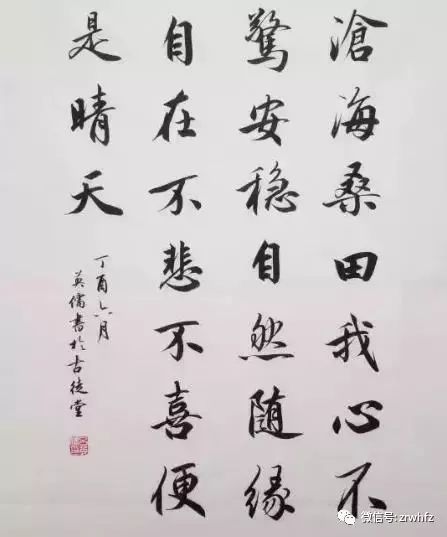 滄海桑田我心不
驚安稳自然随缘
自在不悲不喜便
是晴天
丁酉六月
英儒書於古徒堂
微信号: zrwhfz